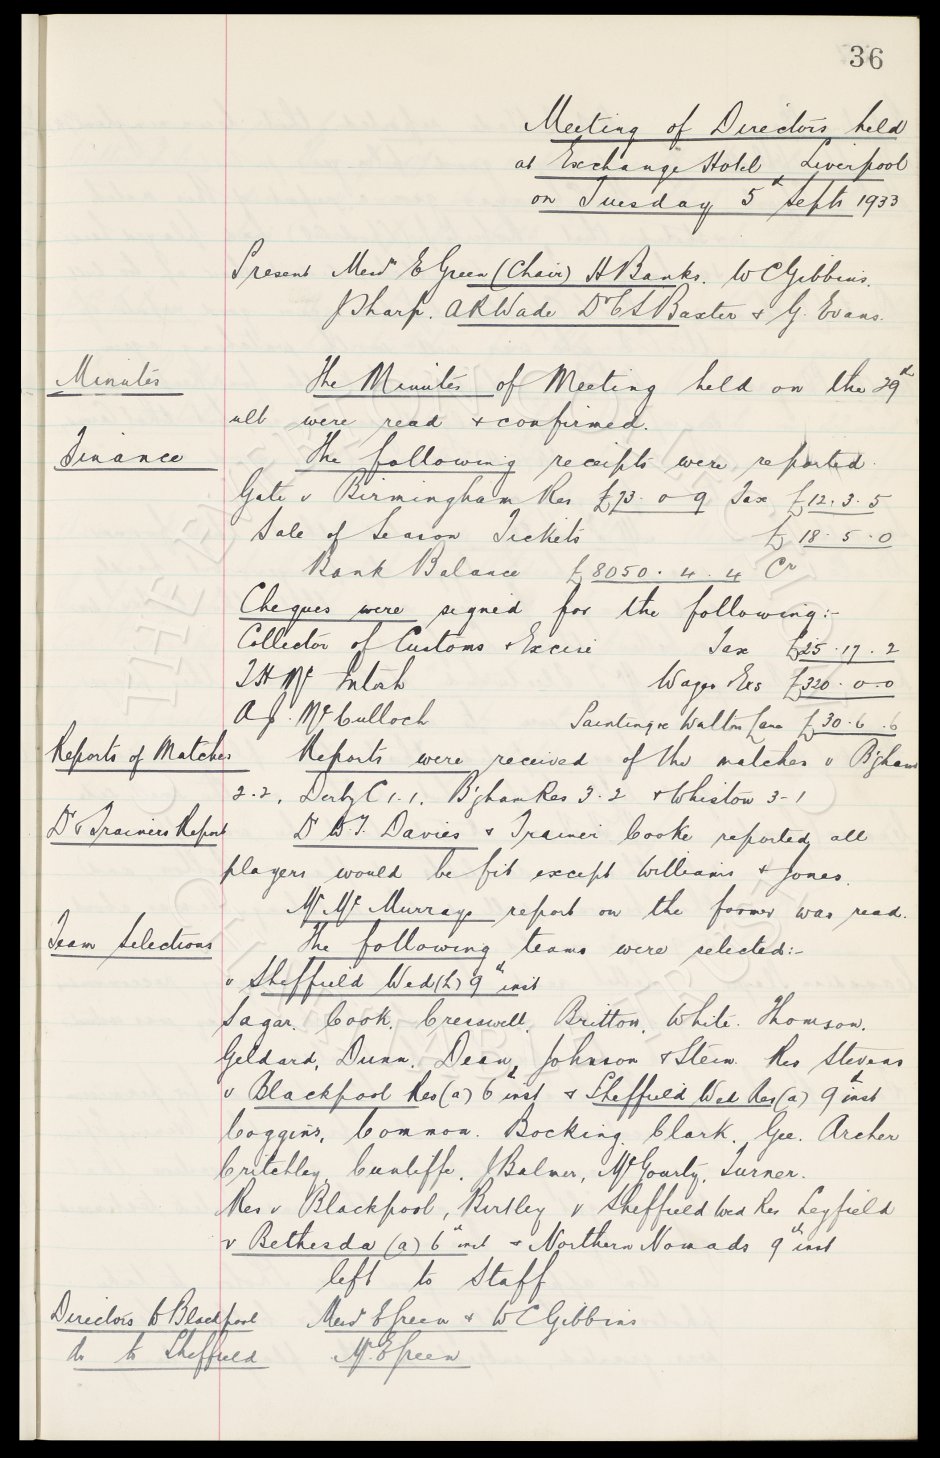 36
Meeting of Directors held
at Exchange Hotel, Liverpool
on Tuesday 5th Septr 1933
Present Messrs E Green (Chair) H Banks. W C Gibbins.
J Sharp. A R Wade Dr C S Baxter & G. Evans.
Minutes The Minutes of Meeting held on the 29th
ult were read & confirmed.
Finance The following receipts were reported.
Gate v Birmingham Res £73. 0 9 Tax £12. 3. 5
Sale of Season Tickets £18. 5. 0
Bank Balance £8050. 4. 4 Cr
Cheques were signed for the following:-
Collector of Customs & Excise Tax £25. 17. 2
T H McIntosh Wages & Exs £320. 0. 0
A J. McCulloch Painting Walton Lane £30. 6. 6
Reports of Matches Reports were received of the matches v B'gham
2-2, Derby C 1-1, B'gham Res 3-2 & Whiston 3-1
Dr & Trainers Report Dr D T. Davies & Trainer Cooke reported all
players would be fit except Williams & Jones.
Mr McMurrays report on the former was read.
Team Selections The following teams were selected:-
v Sheffield Wed (h) 9th inst
Sagar. Cook. Cresswell. Britton. White. Thomson.
Geldard, Dunn, Dean, Johnson & Stein. Res Stevens
v Blackpool Res (a) 6th inst & Sheffield Wed Res (a) 9th inst
Coggins, Common. Bocking. Clark. Gee. Archer
Critchley, Cunliffe, J Balmer, McGourty, Turner.
Res v Blackpool, Birtley v Sheffield Wed Res Leyfield
v Bethesda (a) 6th inst & Northern Nomads 9th inst
left to Staff
Directors to Blackpool Messrs E Green & W C Gibbins
do to Sheffield Mr. E Green